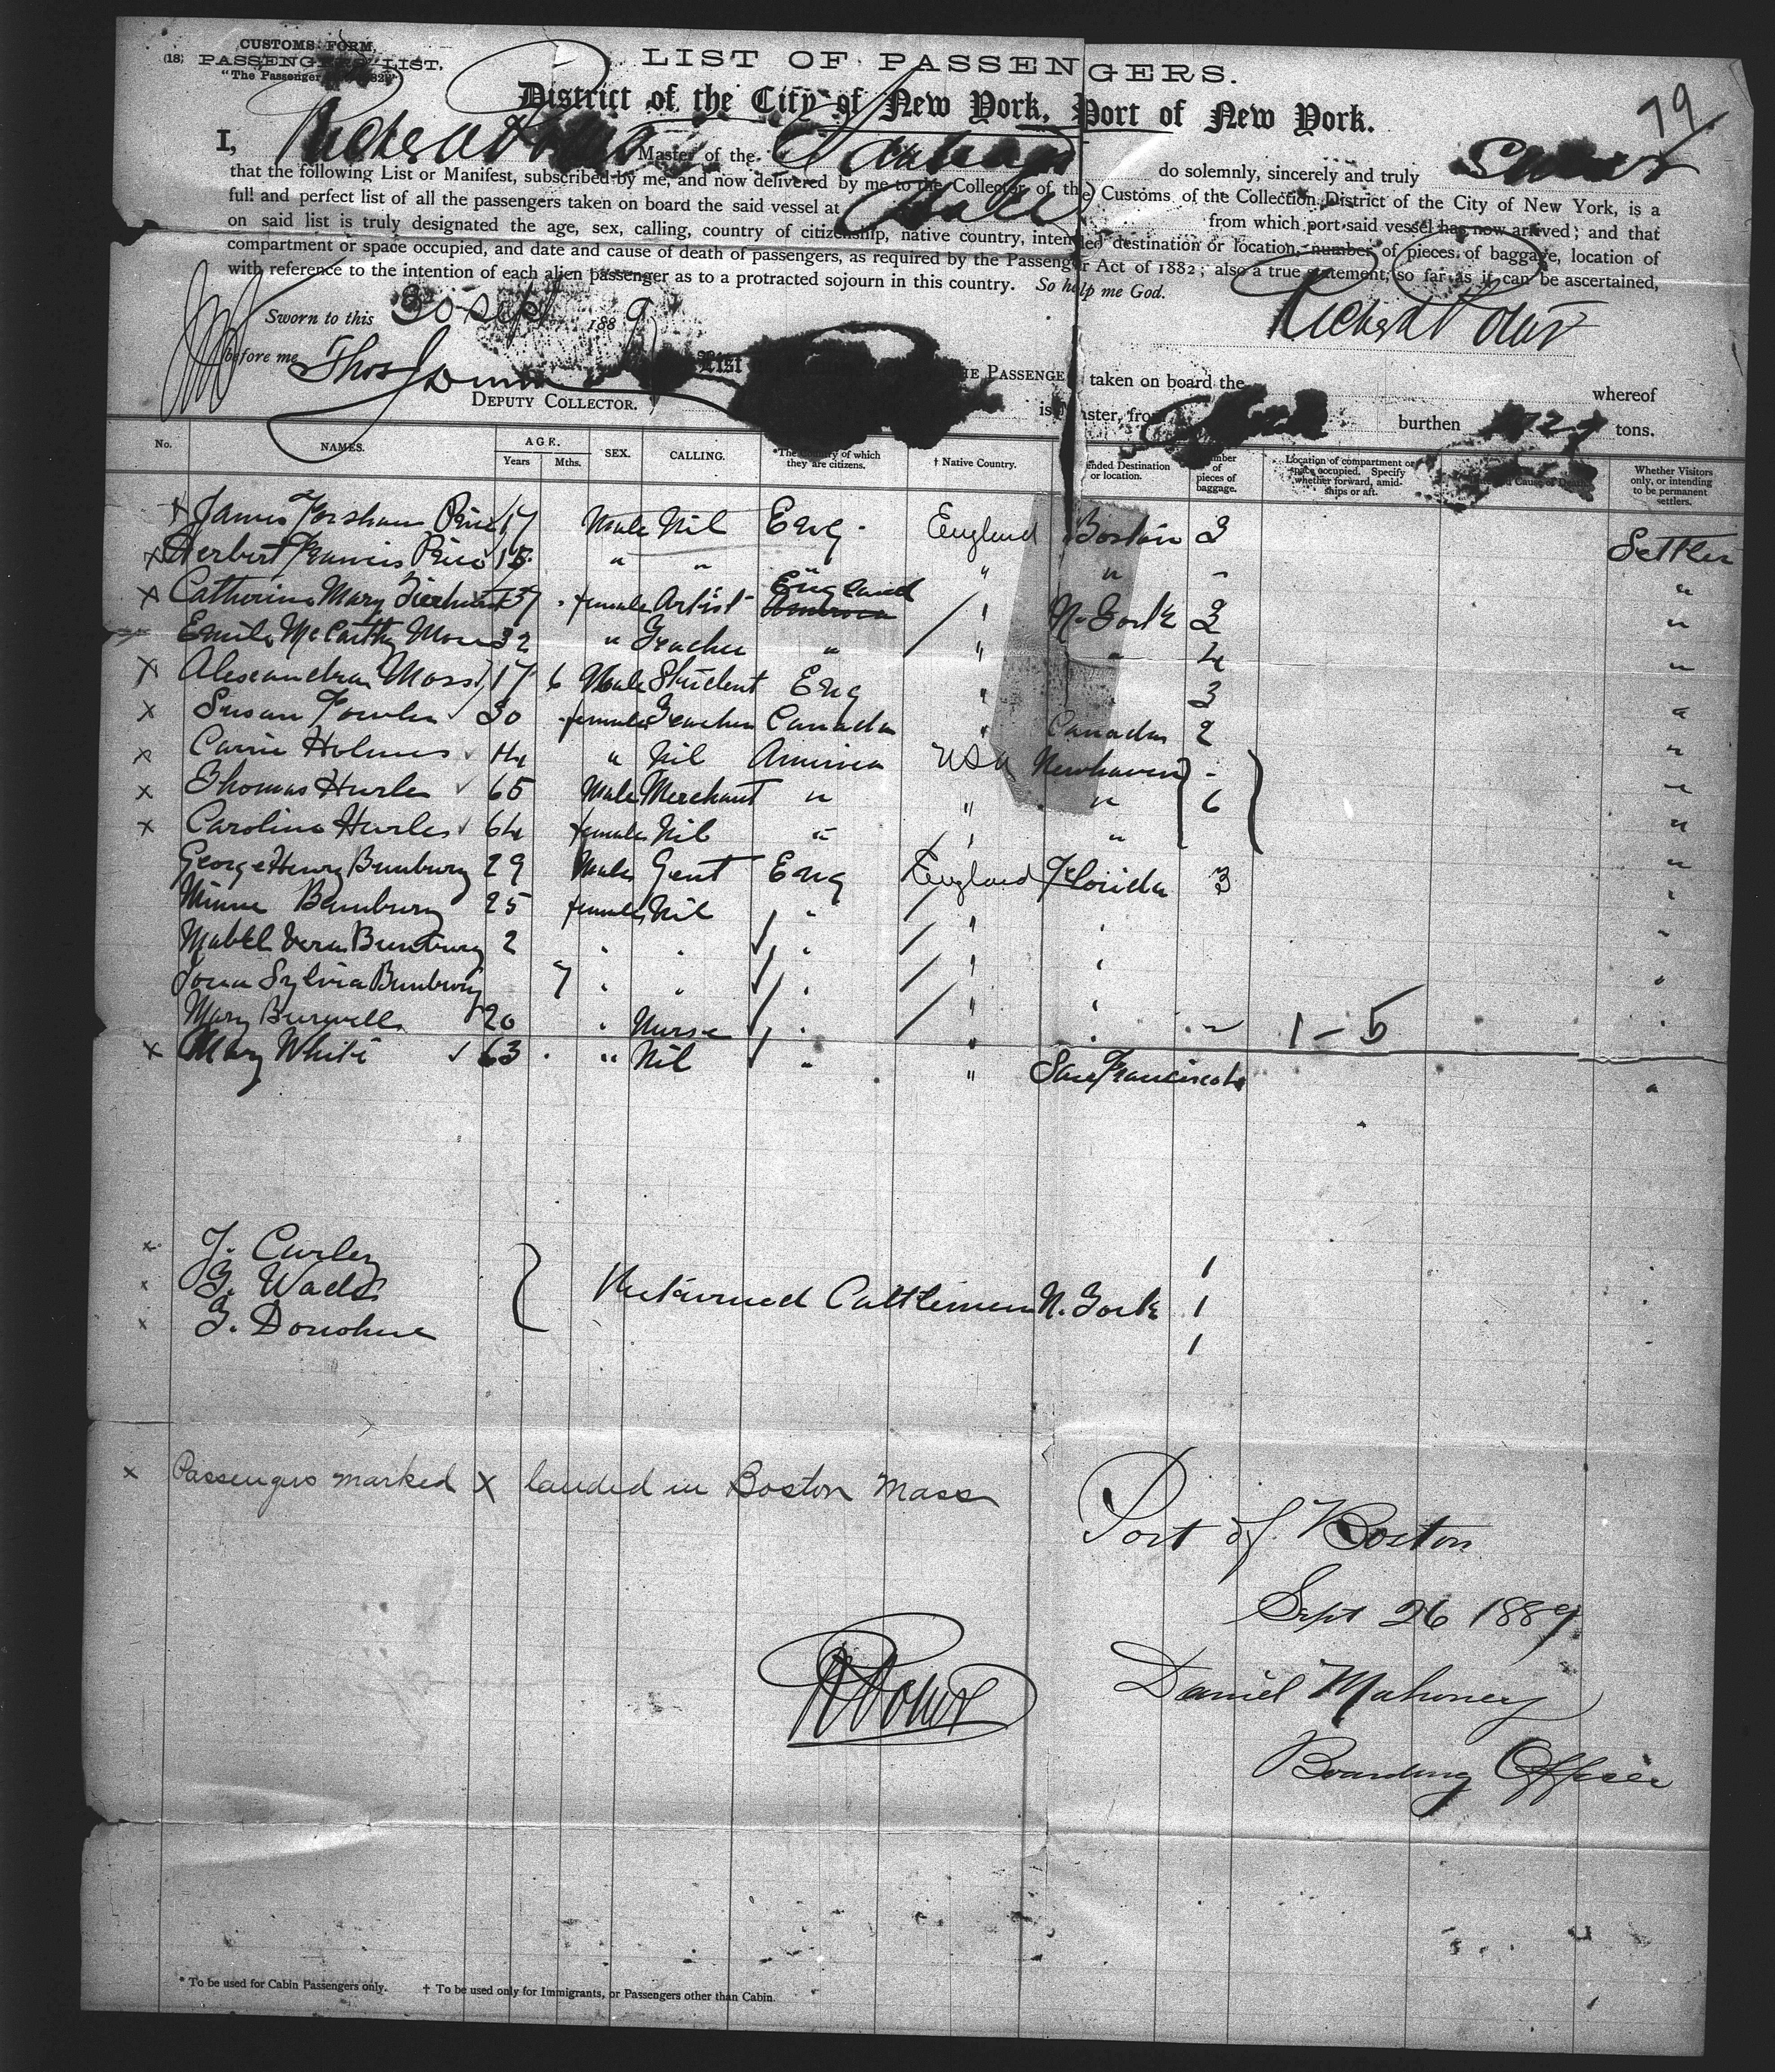 CUSTOMS FORM,
(18) PASSENGERS' LIST.
"The Passenger
LIST OF PASSENGERS.
79
District of the City of New York, Port of New York.
I, Master of the do solemnly, sincerely and truly
that the following List or Manifest, subscribed by me, and now delivered by me to the Collector of the Customs of the Collection District of the City of New York, is a
full and perfect list of all the passengers taken on board the said vessel at from which port said vessel has now arrived; and that
on said list is truly designated the age, sex, calling, country of citizenship, native country, intended destination or location, number of pieces of baggage, location of
compartment or space occupied, and date and cause of death of passengers, as required by the Passenger Act of 1882; also a true statement, so far as it can be ascertained,
with reference to the intention of each alien passenger as to a protracted sojourn in this country. So help me God.
Sworn to this 30 Sept 1889
before me Thos
DEPUTY COLLECTOR.
List THE PASSENGE taken on board the whereof
is master, from burthen tons.
No. NAMES. AGE. Years Mths. SEX. CALLING. *The country of which they are citizens. † Native Country. Intended Destination or location. Number of pieces of baggage. Location of compartment or space occupied. Specify whether forward, amidships or aft. Cause of Death. Whether Visitors only, or intending to be permanent settlers.
x James Forshaw 17 Male Nil Eng. England Boston 3 Settler
x Herbert Francis 15 " " " " " - "
x Catherine Mary 37 female Artist England " N. York 3 "
Emile McCarthy 32 " Teacher " " " 4 "
x Alexandra Moss 17 6 Male Student Eng " 3 "
x Susan Fowler 30 female Teacher Canada " Canada 2 "
x Carrie Holmes 44 " Nil America USA Newhaven - "
x Thomas Hurles 65 Male Merchant " " " 6 "
x Caroline Hurles 64 female Nil " " " "
George Henry Bunbury 29 Male Gent Eng England Florida 3 "
Minnie Bunbury 25 female Nil " " " "
Mabel Vera Bunbury 2 " " " " " "
Sylvia Bunbury 7 " " " " " "
Mary Burwell 20 " Nurse " " " - 1-5 "
x Mary White 63 " Nil " " San Francisco "
x T. Curley 1
x G. Wade } Returned Cattlemen N. York 1
x J. Donohue 1
x Passengers marked X landed in Boston Mass
Port of Boston
Sept 26 1889
Daniel Mahoney
Boarding Officer
* To be used for Cabin Passengers only. † To be used only for Immigrants, or Passengers other than Cabin.